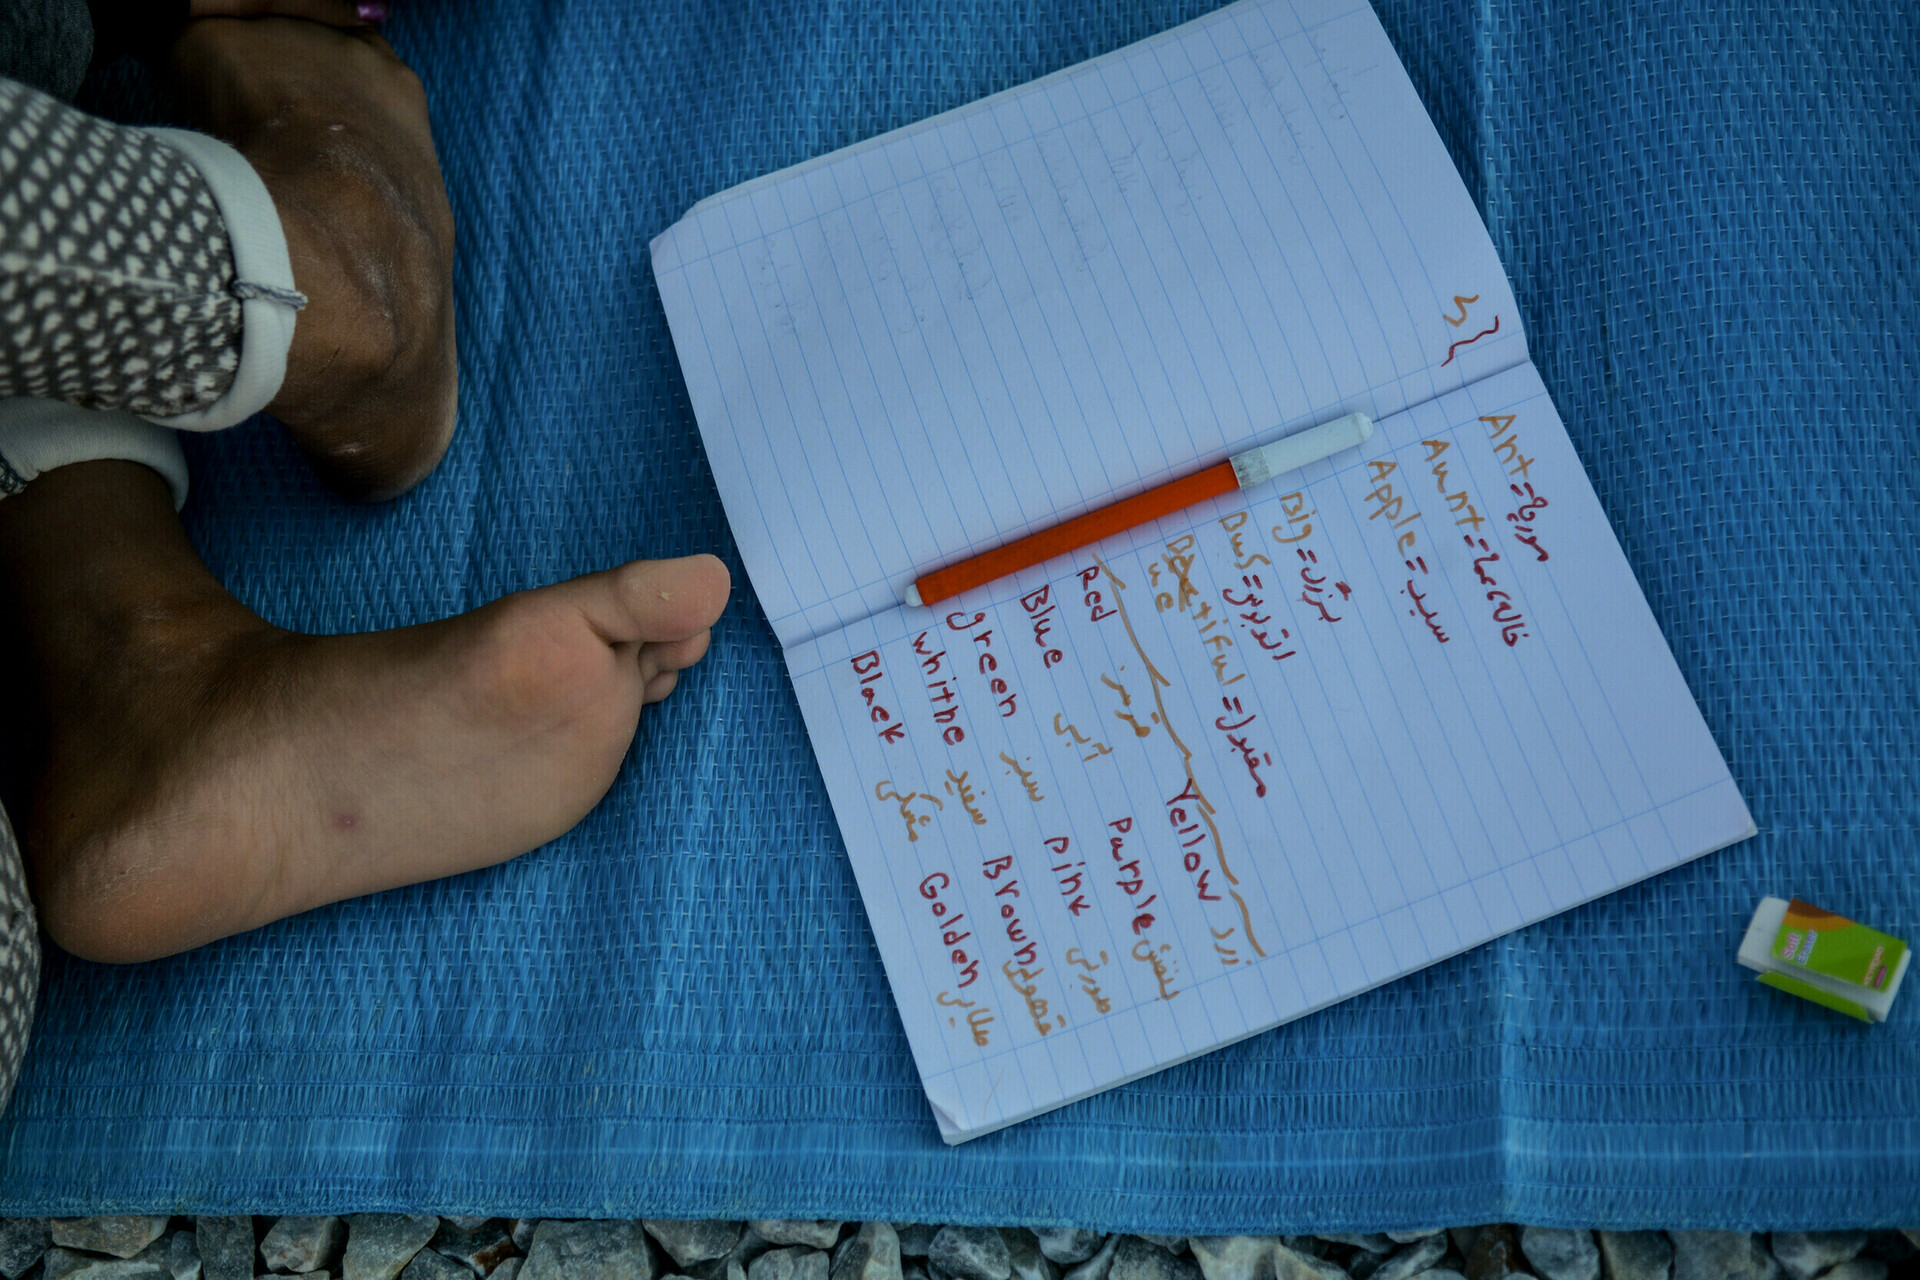 Ant = مورچه
Aunt = خاله، عمه
Apple = سیب
Big = بزرگ
Bus = اتوبوس
ue
Beautiful = مقبول
Yellow زرد
Red قرمز Purple بنفش
Blue آبی Pink صورتی
green سبز Brown قهوه‌ای
whithe سفید Golden طلایی
Black مشکی
Soft